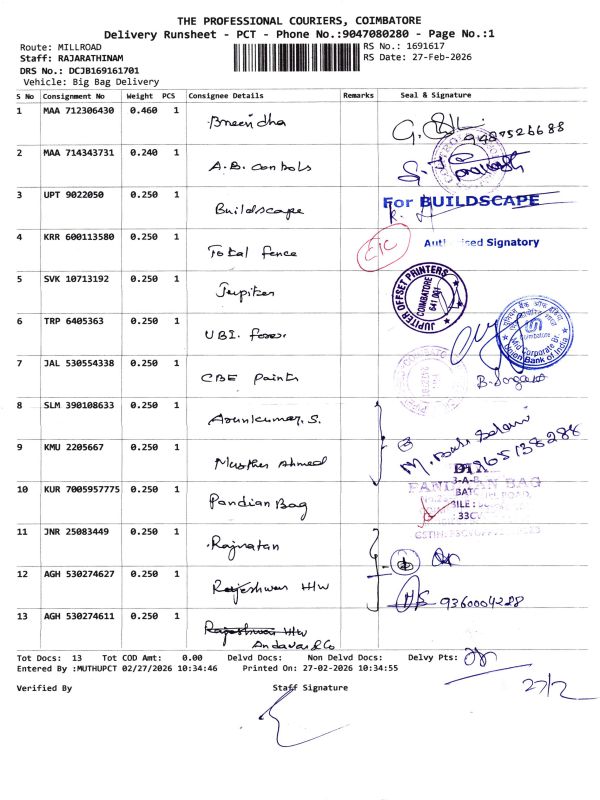 THE PROFESSIONAL COURIERS, COIMBATORE
Delivery Runsheet - PCT - Phone No.:9047080280 - Page No.:1
Route: MILLROAD
RS No.: 1691617
Staff: RAJARATHINAM
RS Date: 27-Feb-2026
DRS No.: DCJB169161701
Vehicle: Big Bag Delivery
S No Consignment No Weight PCS Consignee Details Remarks Seal & Signature
1 MAA 712306430 0.460 1
9487526688
2 MAA 714343731 0.240 1 A.B. Controls
3 UPT 9022050 0.250 1 Buildscape
For BUILDSCAPE
4 KRR 600113580 0.250 1 Total fence
Authorised Signatory
5 SVK 10713192 0.250 1 Jupiter
JUPITER OFFSET PRINTERS
COIMBATORE
641 001
6 TRP 6405363 0.250 1 UBI. forex.
Mid Corporate Br.
Union Bank of India
Coimbatore
7 JAL 530554338 0.250 1 CBE Paints
8 SLM 390108633 0.250 1 Arunkumar. S.
9 KMU 2205667 0.250 1 Musther Ahmed
10 KUR 7005957775 0.250 1 Pandian Bag
PANDIAN BAG
3-A-8,
11 JNR 25083449 0.250 1 Rajratan
12 AGH 530274627 0.250 1 Rajeshwari H/w
9360004288
13 AGH 530274611 0.250 1 Rajeshwari H/w
Andavar & Co
Tot Docs: 13 Tot COD Amt: 0.00 Delvd Docs: Non Delvd Docs: Delvy Pts:
Entered By :MUTHUPCT 02/27/2026 10:34:46 Printed On: 27-02-2026 10:34:55
27/2
Verified By Staff Signature